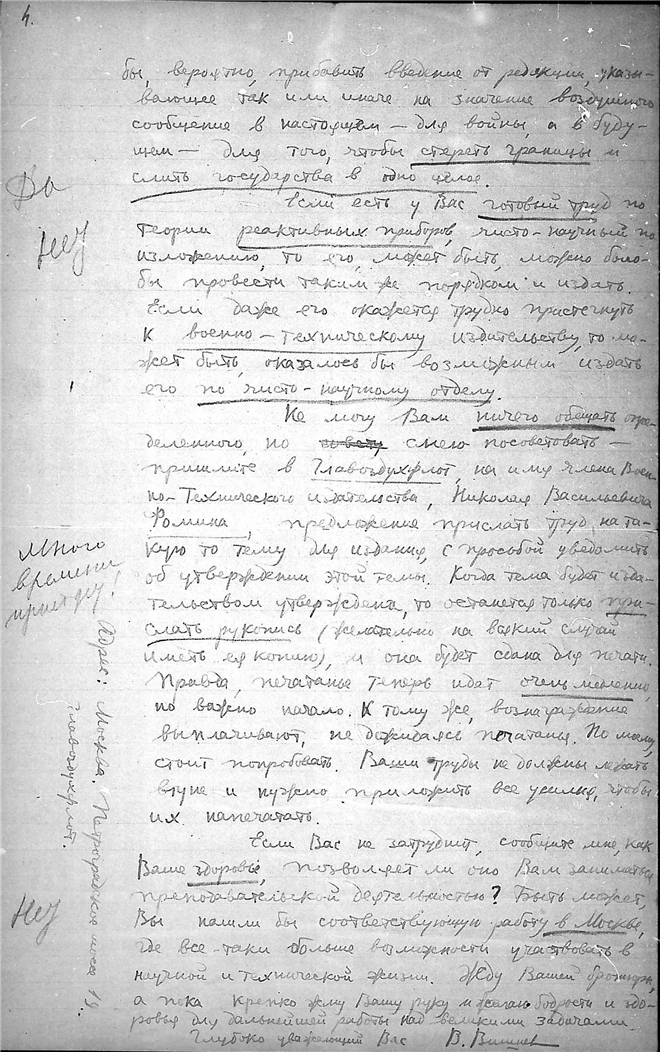 4.
бы, вероятно, прибавить введение от редакции, указы-
вающее так или иначе на значение воздушного
сообщение в настоящем — для войны, а в буду-
щем — для того, чтобы стереть границы и
слить государства в одно целое.
Да
Если есть у Вас готовый труд по
Нет
теории реактивных приборов, чисто-научный по
изложению, то его, может быть, можно было-
бы провести таким же порядком и издать.
Если даже его окажется трудно пристегнуть
к военно-техническому издательству, то мо-
жет быть, оказалось бы возможным издать
его по чисто-научному отделу.
Не могу Вам ничего обещать опре-
деленного, но смею посоветовать —
пришлите в Главоздухфлот, на имя члена Воен-
но-Технического издательства, Николая Васильевича
Фомина, предложение прислать труд на та-
кую то тему для издания, с просьбой уведомить
об утверждении этой темы. Когда тема будет изда-
тельством утверждена, то останется только при-
слать рукопись (желательно на всякий случай
иметь ея копию), и она будет сдана для печати.
Правда, печатанье теперь идет очень медленно,
но важно начало. К тому же, вознаграждение
выплачивают, не дожидаясь печатанья. По моему,
стоит попробовать. Ваши труды не должны лежать
втуне и нужно приложить все усилия, чтобы
их напечатать.
много
времени
Адрес: Москва. Петроградское шоссе
Главоздухфлот.
Если Вас не затруднит, сообщите мне, как
Ваше здоровье, позволяет ли оно Вам заниматься
преподавательской деятельностью? Быть может,
Нет
Вы нашли бы соответствующую работу в Москве,
где все-таки больше возможности участвовать в
научной и технической жизни. Жду Вашей брошюры,
а пока крепко жму Вашу руку и желаю бодрости и здо-
ровья для дальнейшей работы над великими задачами.
Глубоко уважающий Вас В.